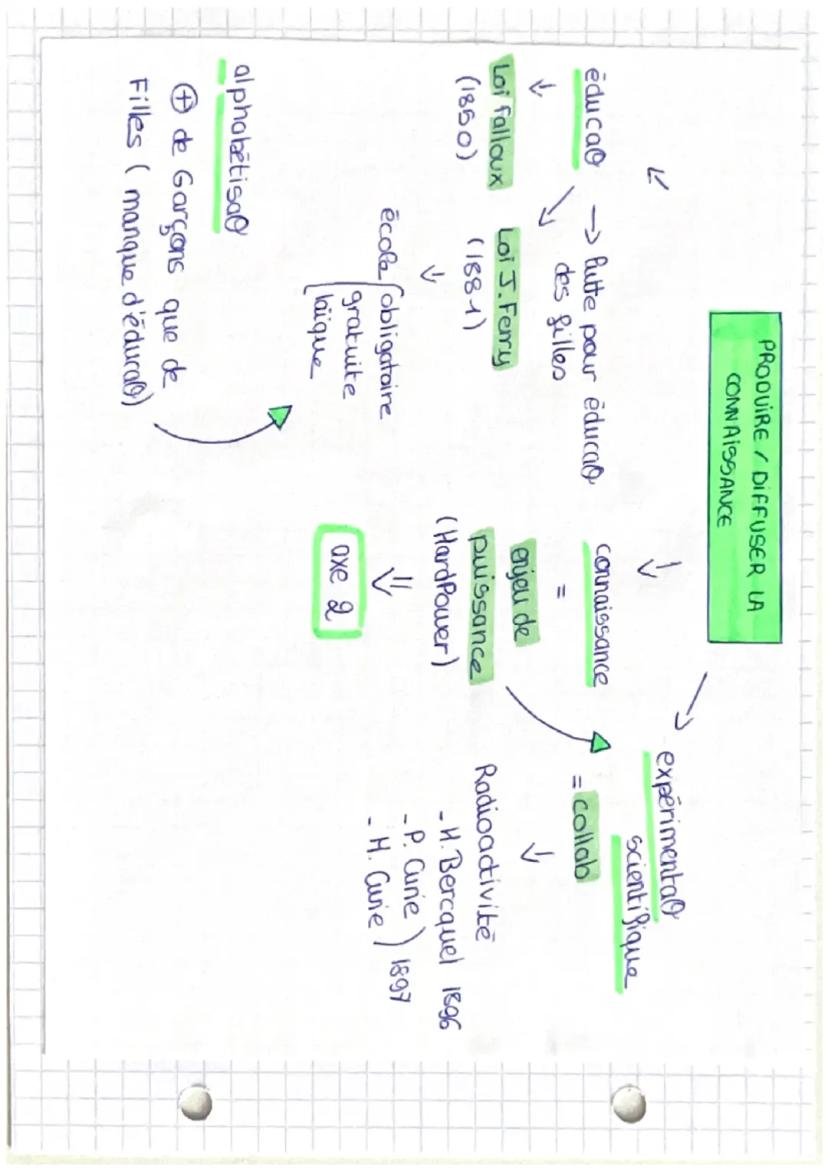 PRODUIRE / DIFFUSER LA
CONNAISSANCE
éducaO
→ lutte pour éducaO
des filles
Loi falloux
(1850)
Loi J. Ferry
(1881)
école
obligatoire
gratuite
laïque
alphabétisaO
+ de Garçons que de
Filles ( manque d'éducaO)
connaissance
=
enjeu de
puissance
(HardPower)
axe 2
expérimentaO
scientifique
= collab
Radioactivité
- H. Bercquel 1896
- P. Curie ) 1897
- H. Curie